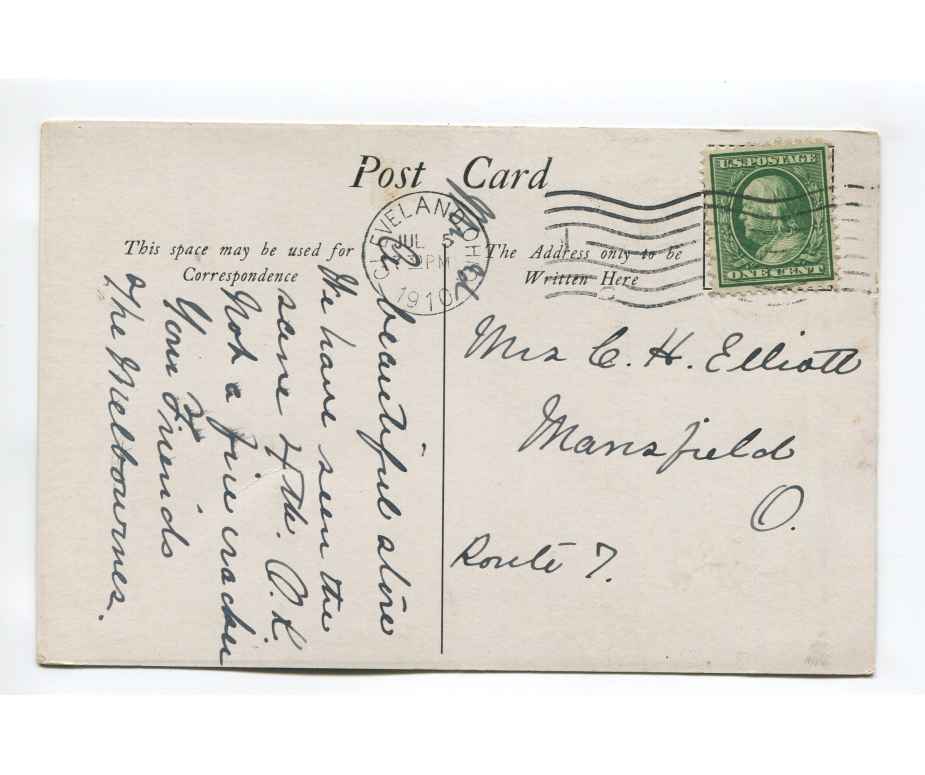 Post Card
CLEVELAND, OHIO
JUL 5
PM
1910
U.S. POSTAGE
ONE CENT
This space may be used for
Correspondence
The Address only to be
Written Here
beautiful
We have seen the
sane 4th. O.K.
Not a fire cracker
Your Friends
The Melbournes.
Mrs C. H. Elliott
Mansfield
O.
Route 7.